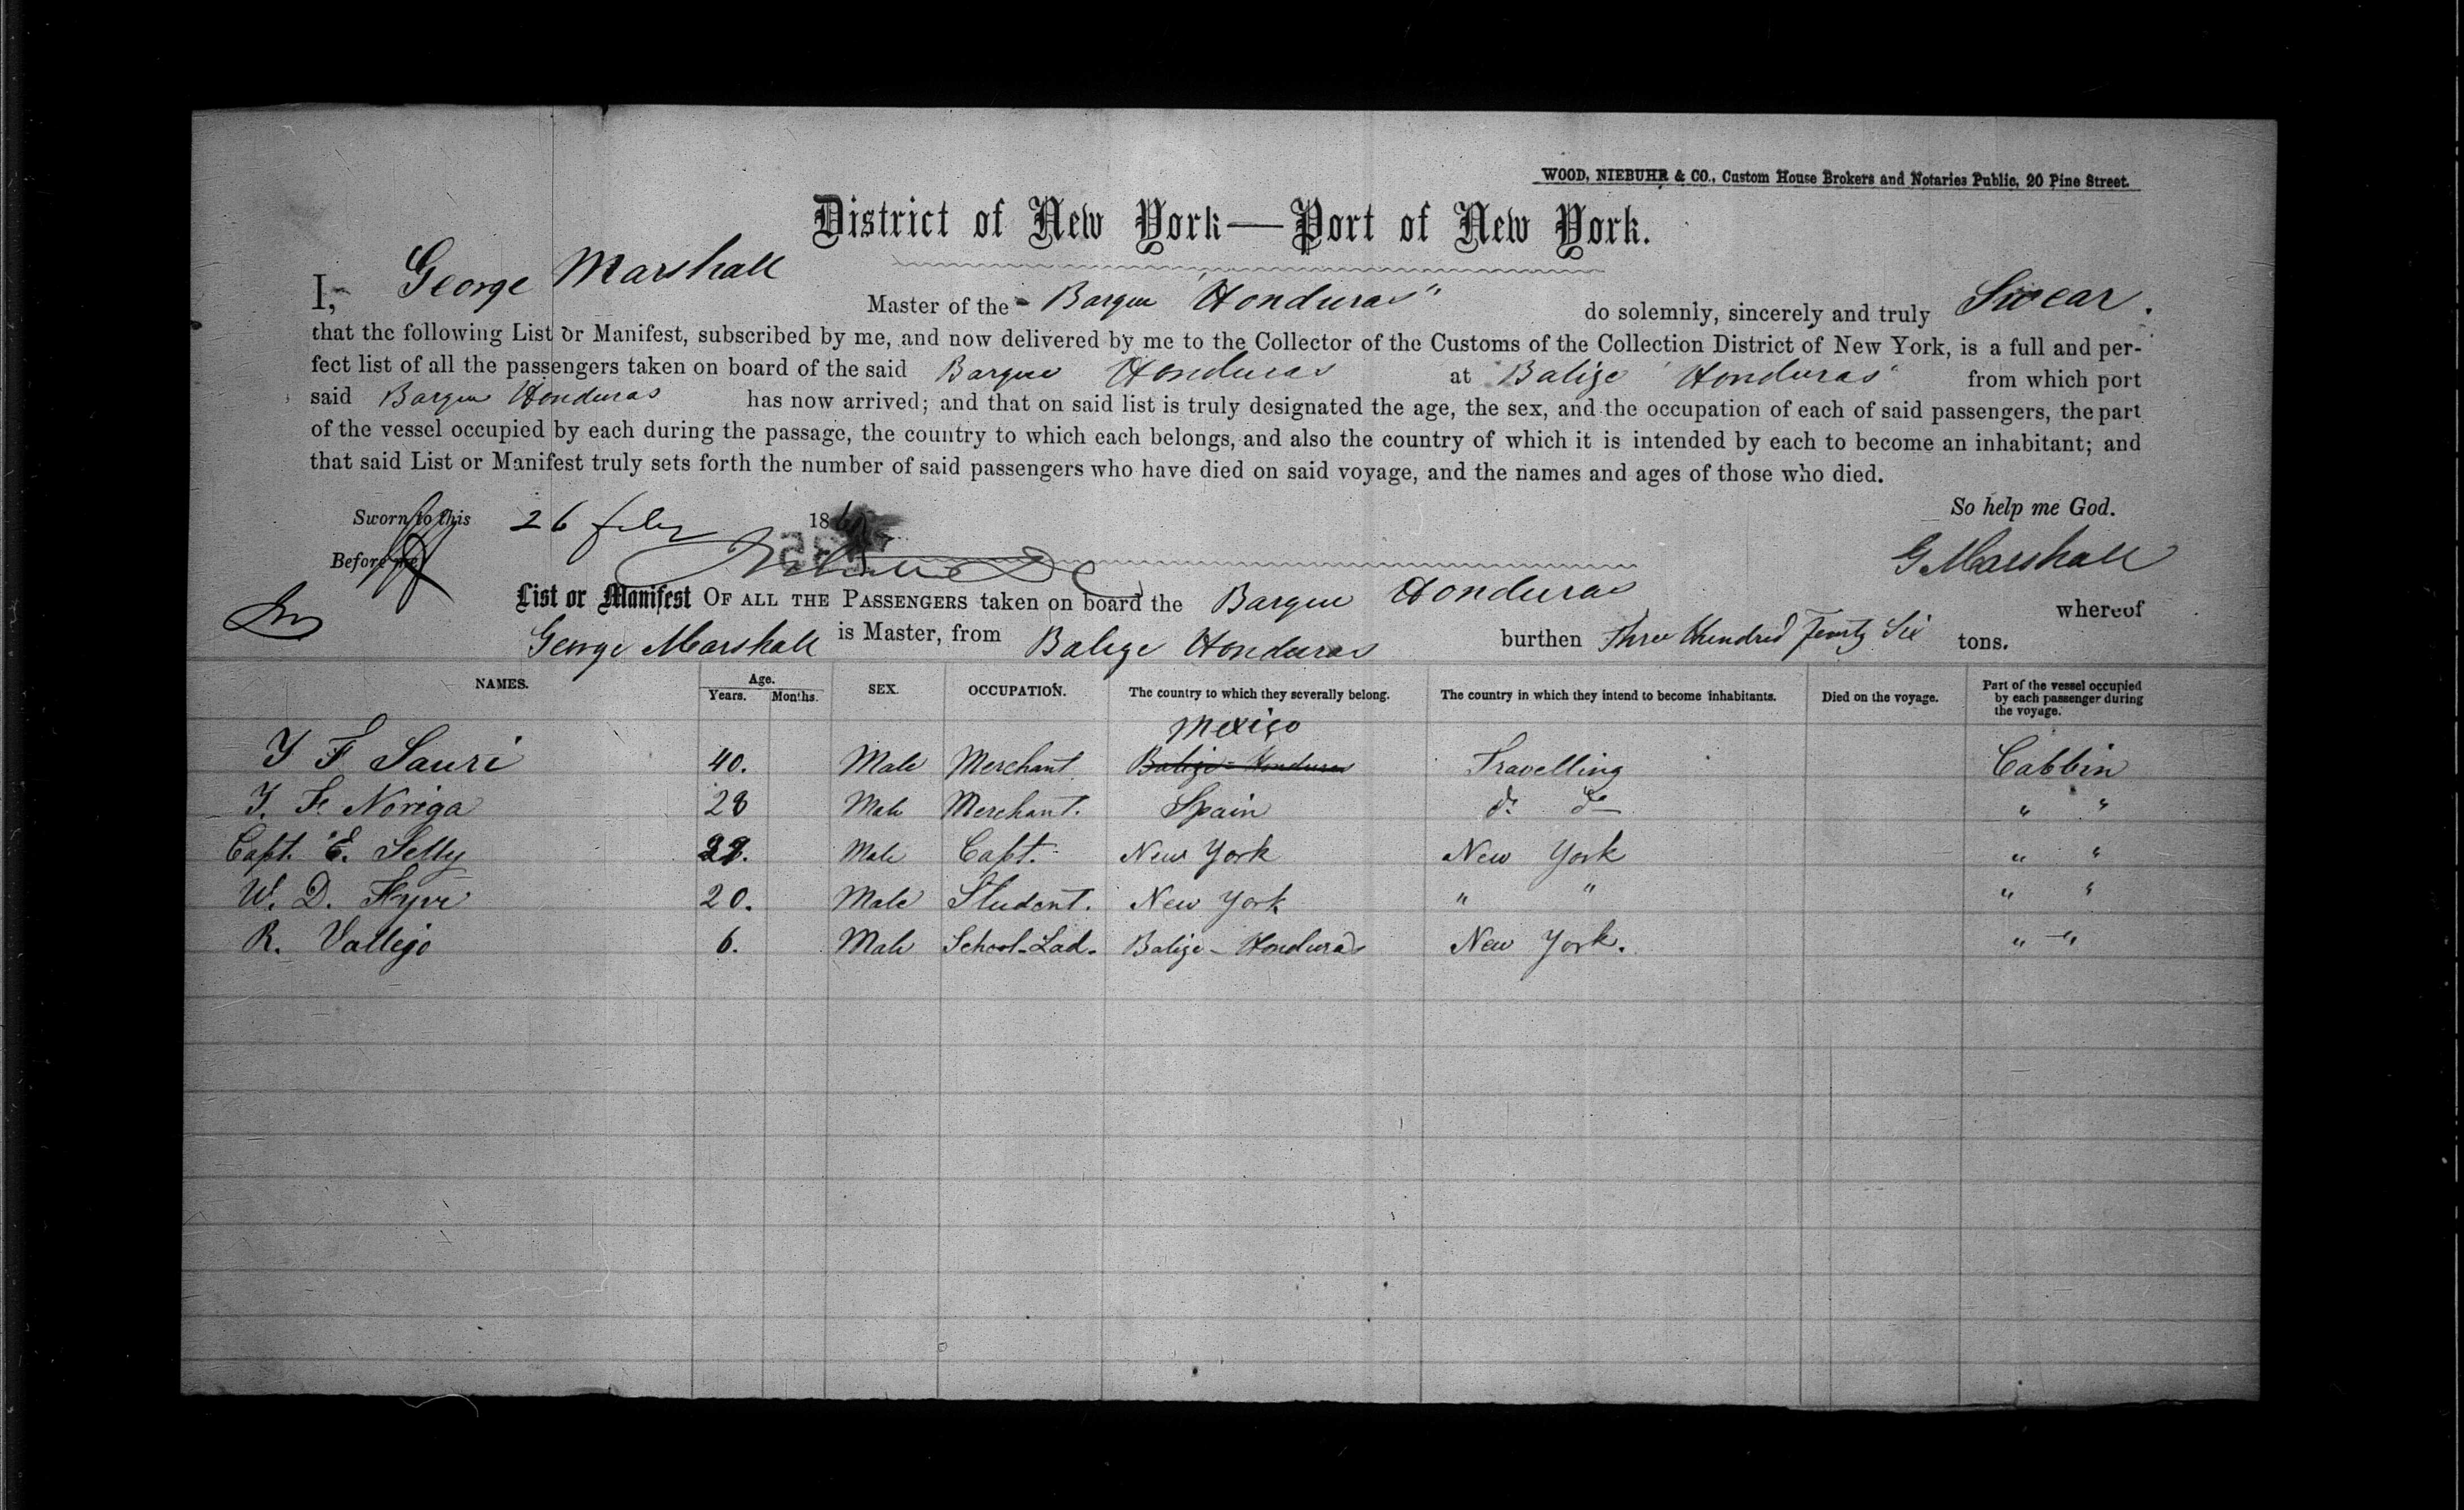 WOOD, NIEBUHR & CO., Custom House Brokers and Notaries Public, 20 Pine Street.
District of New York—Port of New York.
I, George Marshall Master of the Barque "Honduras" do solemnly, sincerely and truly Swear.
that the following List or Manifest, subscribed by me, and now delivered by me to the Collector of the Customs of the Collection District of New York, is a full and per-
fect list of all the passengers taken on board of the said Barque Honduras at Balize Honduras from which port
said Barque Honduras has now arrived; and that on said list is truly designated the age, the sex, and the occupation of each of said passengers, the part
of the vessel occupied by each during the passage, the country to which each belongs, and also the country of which it is intended by each to become an inhabitant; and
that said List or Manifest truly sets forth the number of said passengers who have died on said voyage, and the names and ages of those who died.
So help me God.
Sworn to this 26 feby 186
G Marshall
Before me
List or Manifest OF ALL THE PASSENGERS taken on board the Barque Honduras whereof
George Marshall is Master, from Balize Honduras burthen Three Hundred Twenty Six tons.
NAMES. Age. Years. Months. SEX. OCCUPATION. The country to which they severally belong. The country in which they intend to become inhabitants. Died on the voyage. Part of the vessel occupied by each passenger during the voyage.
Mexico
Y F Sauri 40. Male Merchant Balize-Honduras Travelling Cabbin
Y. F. Noriga 28 Male Merchant. Spain do do " "
Capt. E. Selly Male Capt. New York New York " "
W. D. 20. Male Student. New York " " " "
R. Vallejo 6. Male School-Lad. Balize-Honduras New York. " "